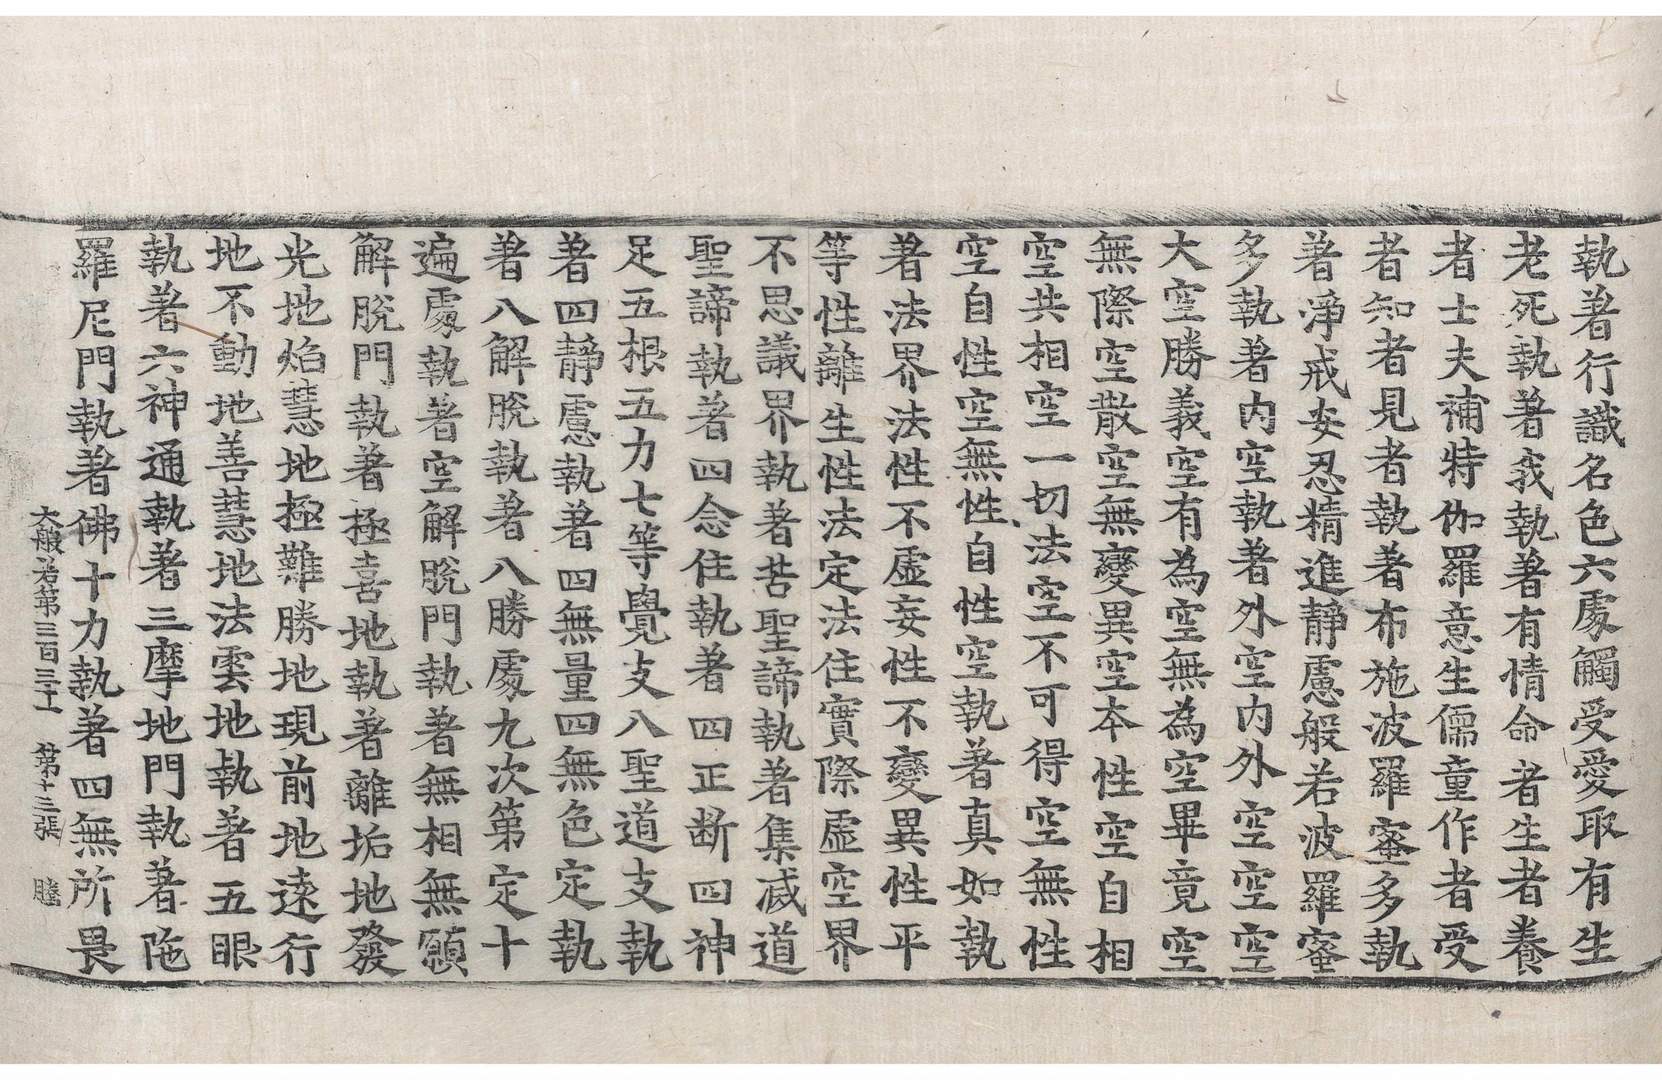 執著行識名色六處觸受愛取有生
老死執著我執著有情命者生者養
者士夫補特伽羅意生儒童作者受
者知者見者執著布施波羅蜜多執
著淨戒安忍精進靜慮般若波羅蜜
多執著內空執著外空內外空空空
大空勝義空有為空無為空畢竟空
無際空散空無變異空本性空自相
空共相空一切法空不可得空無性
空自性空無性自性空執著真如執
著法界法性不虛妄性不變異性平
等性離生性法定法住實際虛空界
不思議界執著苦聖諦執著集滅道
聖諦執著四念住執著四正断四神
足五根五力七等覺支八聖道支執
著四靜慮執著四無量四無色定執
著八解脫執著八勝處九次第定十
遍處執著空解脫門執著無相無願
解脫門執著極喜地執著離垢地發
光地焰慧地極難勝地現前地遠行
地不動地善慧地法雲地執著五眼
執著六神通執著三摩地門執著陁
羅尼門執著佛十力執著四無所畏
大般若第三百三十 第十三張